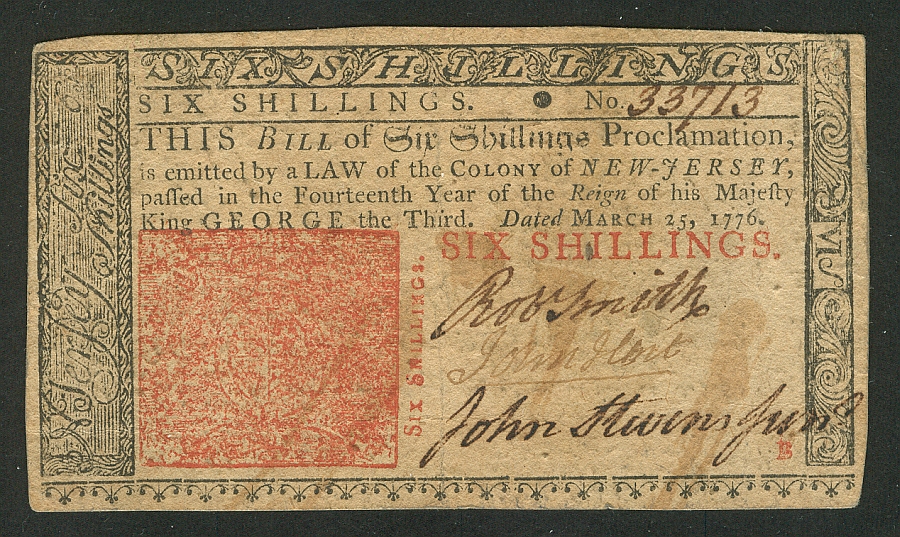 SIX SHILLINGS
SIX SHILLINGS. No. 33713
THIS BILL of Six Shillings Proclamation,
is emitted by a LAW of the COLONY of NEW-JERSEY,
paſſed in the Fourteenth Year of the Reign of his Majeſty
King GEORGE the Third. Dated MARCH 25, 1776.
SIX SHILLINGS.
Six Shillings.
Robt Smith
John Hart
John Stevens Junr
B
Jerſey Six
Shillings
VI